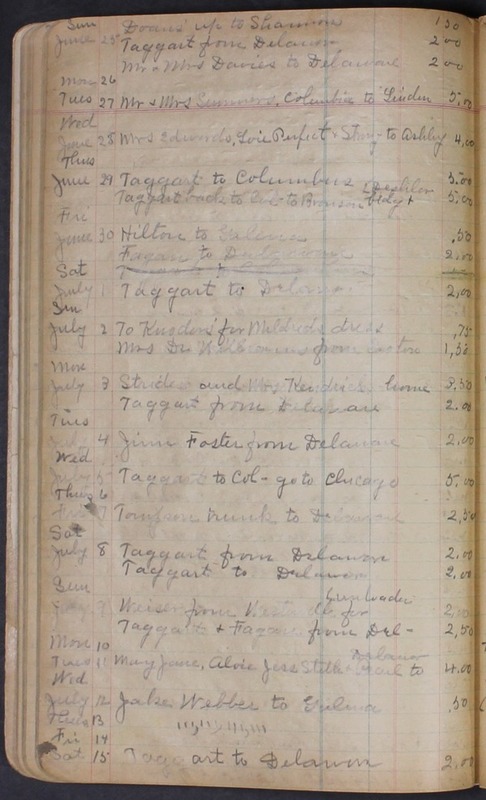 Sun Doans' up to Shannon 1 50
June 25 Taggart from Delawon 2 00
Mr & Mrs Davies to Delaware 2 00
Mon 26
Tues 27 Mr & Mrs Simmons, Columbus to Linden 5.00
Wed
June 28 Mrs Edwards, Perfect & to Ashley 4.00
Thus
June 29 Taggart to Columbus 5.00
Taggart back to to Bronson Deshler bldg + 5.00
Fri
June 30 Hilton to Galena .50
Fagan to 2.00
Sat
July 1 Taggart to Delawon 2.00
Sun
July 2 To for Mildreds dress .75
Mrs Dr from 1.50
Mon
July 3 Strider and Mrs Kendrick home 3.50
Taggart from Delaware 2.00
Tues
4 Jim Foster from Delaware 2.00
Wed
July 5 Taggart to Col - go to Chicago 5.00
Thus 6
Fri 7 Tompson trunk to Delaware 2.50
Sat
July 8 Taggart from Delawon 2.00
Taggart to Delawon 2.00
Sun
9 Weiser from for 2.00
Taggart + Fagan from Del- 2.50
Mon 10
Tues 11 Mary Jane, Alvie Jess to Delawon 4.00
Wed
July 12 Jake Webber to Galena .50
Thus 13
Fri 14
Sat 15 Taggart to Delawon 2.00